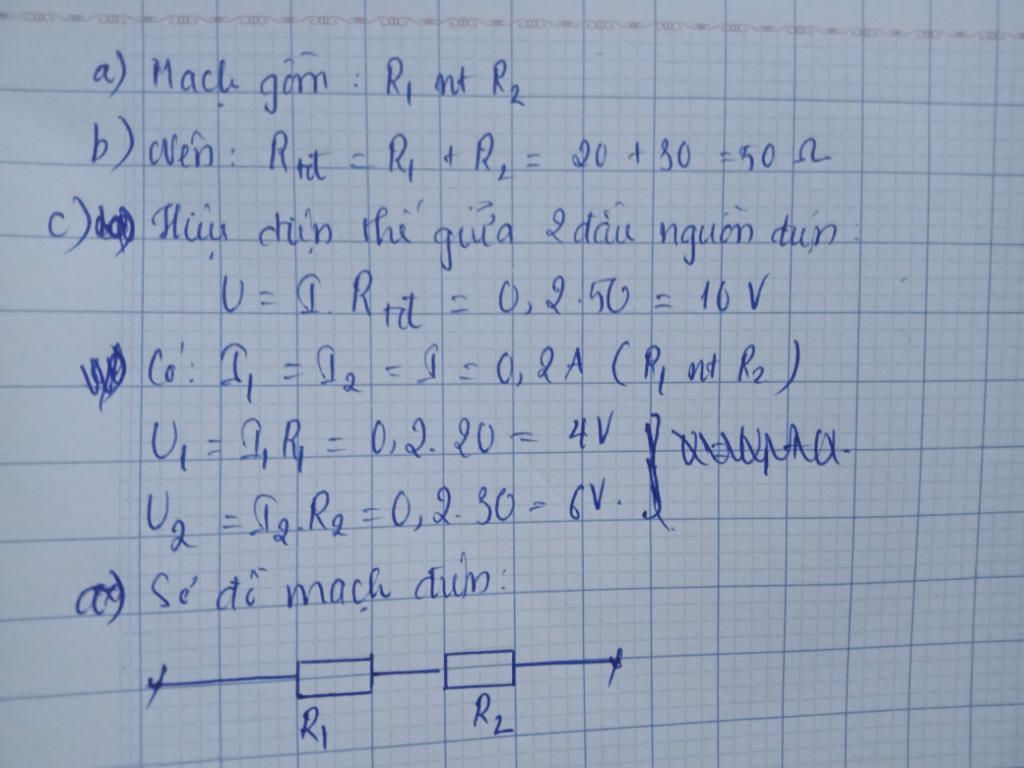 a) Mạch gồm : R₁ nt R₂
b) Nên : Rtđ = R₁ + R₂ = 20 + 30 = 50 Ω
c) Hiệu điện thế giữa 2 đầu nguồn điện :
U = I. Rtđ = 0,2.50 = 10 V
Có: I₁ = I₂ = I = 0,2A (R₁ nt R₂)
U₁ = I₁R₁ = 0,2.20 = 4V
U₂ = I₂.R₂ = 0,2.30 = 6V.
a) Sơ đồ mạch điện :
R₁ R₂